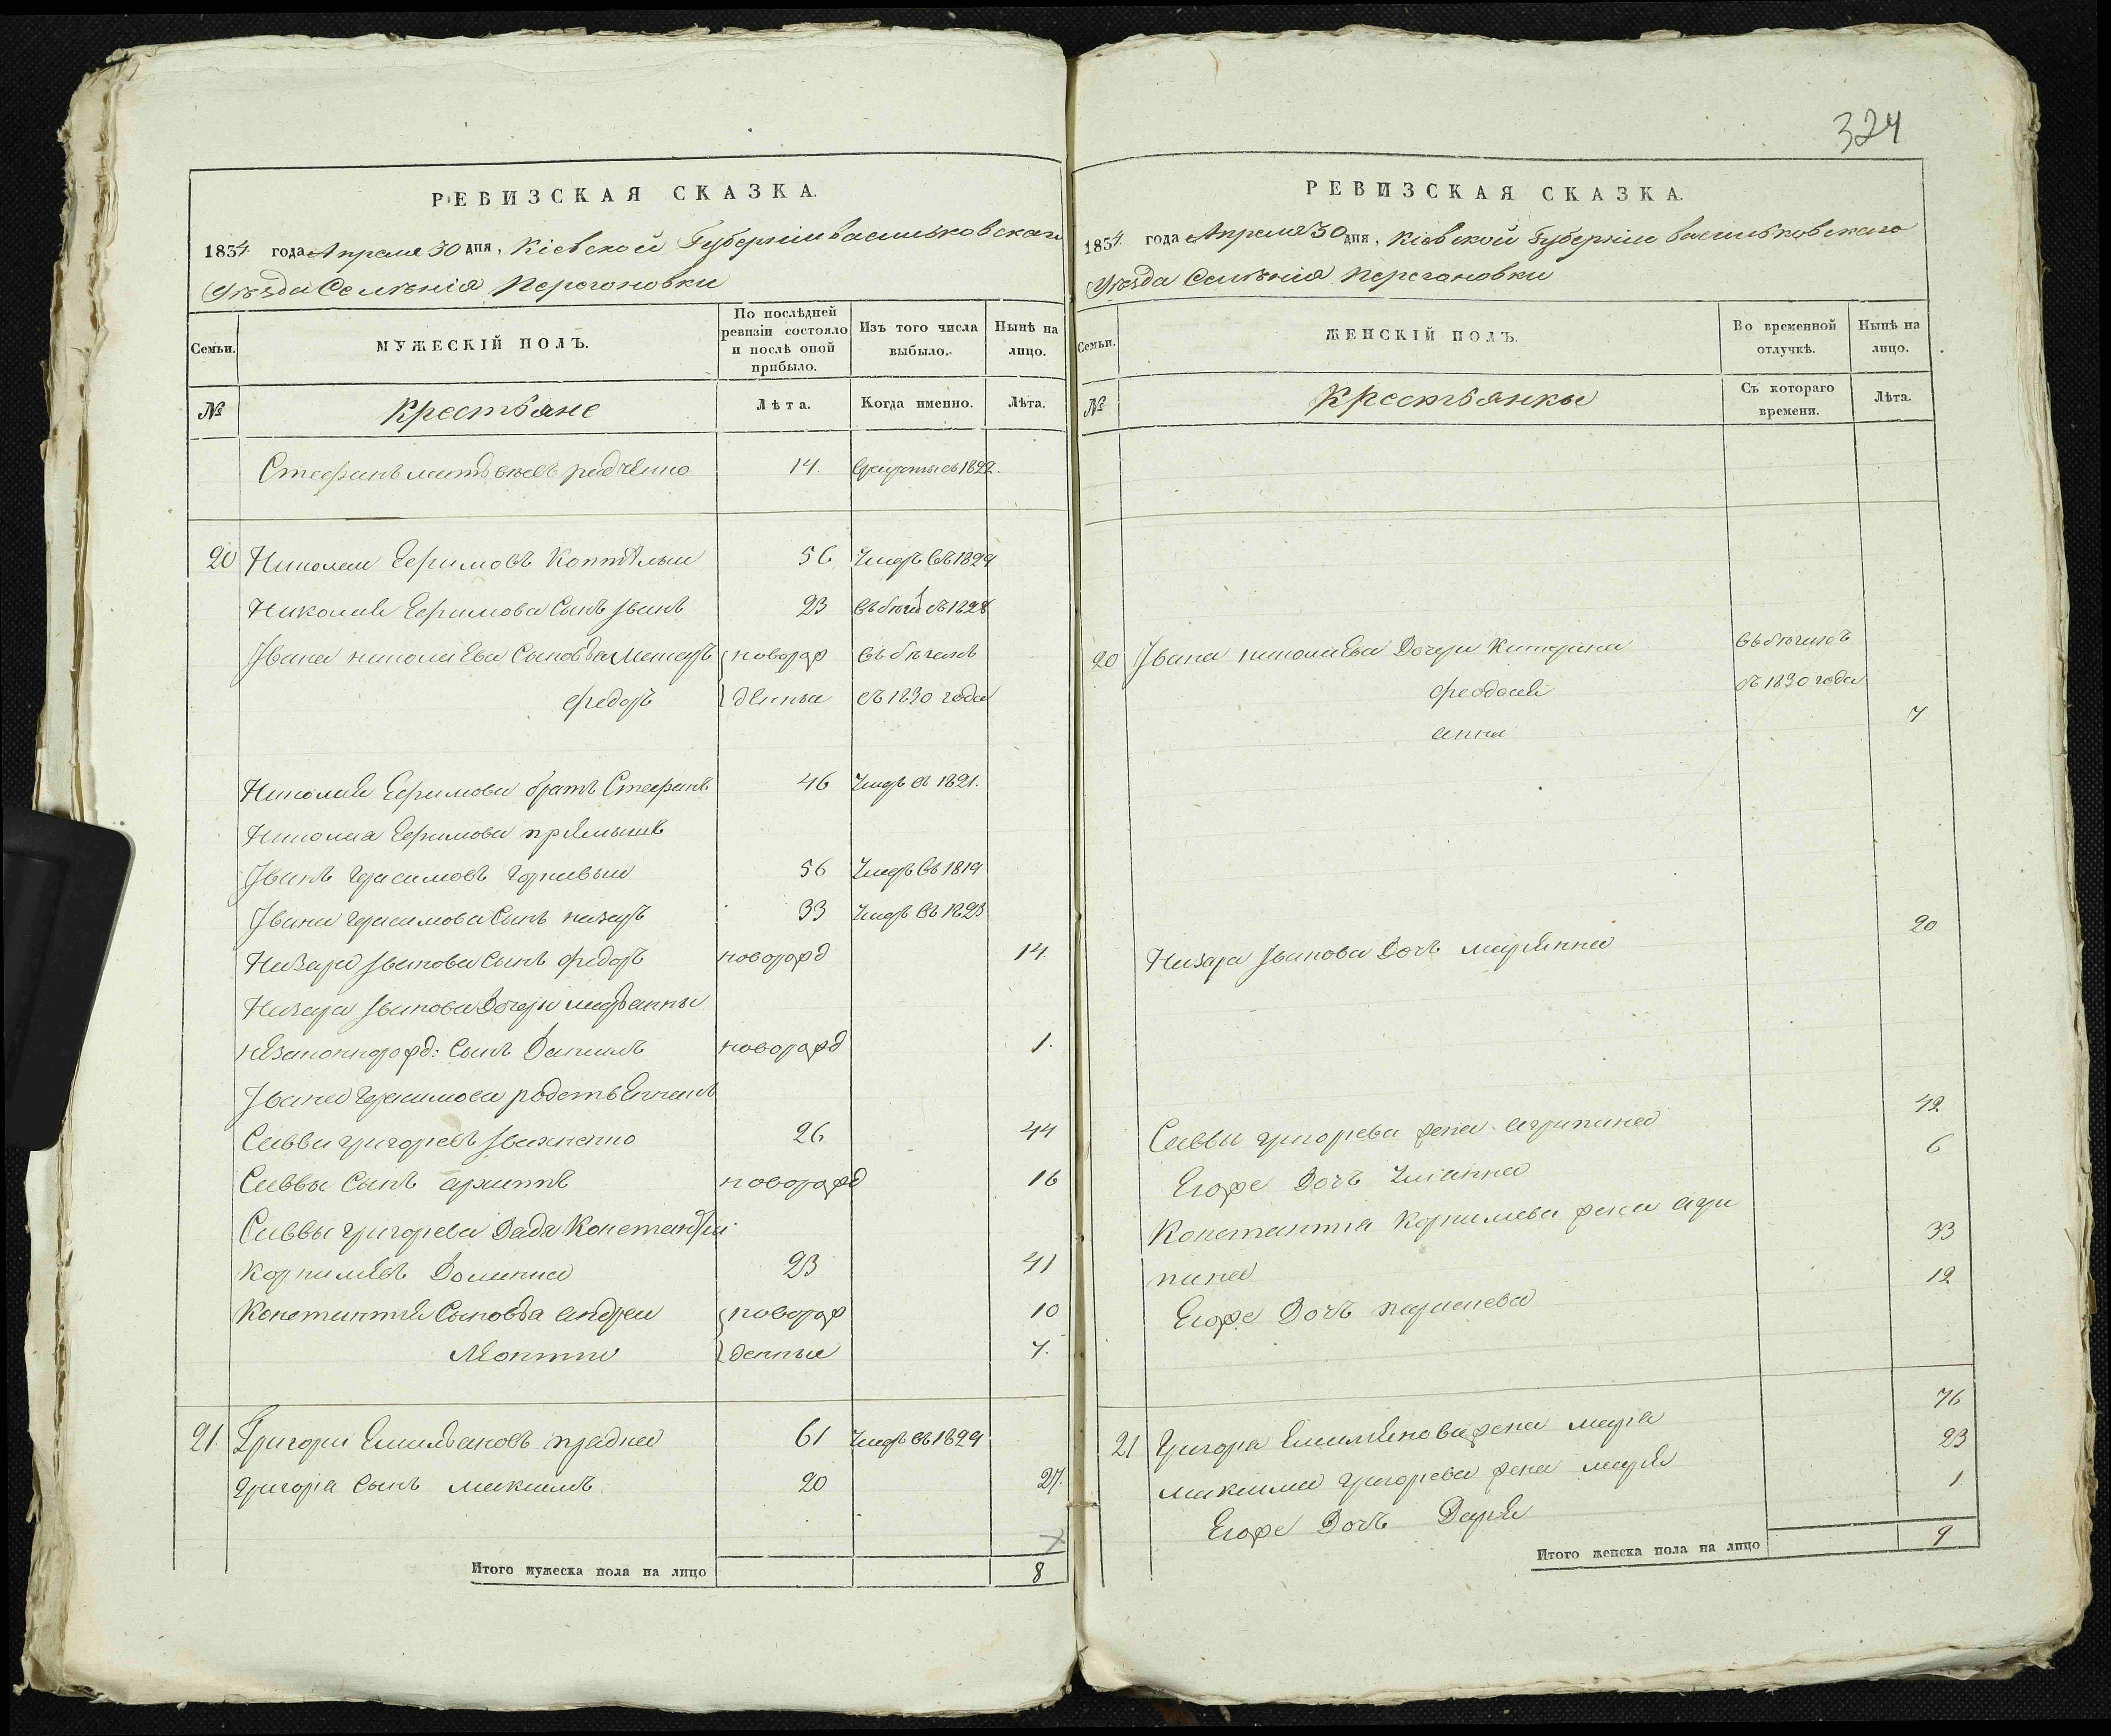 324
РЕВИЗСКАЯ СКАЗКА.
1834 года Апреля 30 дня, Кіевской Губерніи Васильковскаго
Уѣзда Селенія Перегоновки
Семьи.
МУЖЕСКІЙ ПОЛЪ.
По послѣдней ревизіи состояло и послѣ оной прибыло.
Изъ того числа выбыло.
Нынѣ на лицо.
№
Крестьяне
Лѣта.
Когда именно.
Лѣта.
Стефанъ 14. 1822.
20 Николай Ефимовъ 56 Умеръ въ 1829
Николая Ефимова Сынъ Іванъ 23 въ бѣгахъ съ 1828
Івана николаева Сыновья новорож въ бѣгахъ
федоръ денныи съ 1830 года
Николая Ефимова братъ Стефанъ 46 Умеръ въ 1821.
Николая Ефимова
Іванъ герасимовъ 56 Умеръ въ 1819
Івана герасимова Сынъ назаръ 33 Умеръ въ 1823
Назара Іванова Сынъ федоръ новорожд 14
Назара Іванова Дочери марьянны
незаконнорожд: Сынъ Данилъ новорожд 1.
Івана герасимова родственникъ
Савва григорьевъ Івахненко 26 44
Саввы Сынъ архипъ новорожд 16
Саввы григорьева Дядя Константій
корнилѣевъ 23 41
Константія Сыновья андрей новорож 10
Леонтій денныи 7.
21. Григорій Емильановъ 61 Умеръ въ 1829
Григорія Сынъ максимъ 20 27.
Итого мужеска пола на лицо 8
РЕВИЗСКАЯ СКАЗКА.
1834 года Апреля 30 дня, Кіевской Губерніи Васильковскаго
Уѣзда Селенія Перегоновки
Семьи.
ЖЕНСКІЙ ПОЛЪ.
Во временной отлучкѣ.
Нынѣ на лицо.
№
Крестьянки
Съ котораго времени.
Лѣта.
20 Івана николаева Дочери Катерина въ бѣгахъ
феодосия съ 1830 года
анна 7
Назара Іванова Дочь марянна 20
Саввы григорьева жена агрипина 42
Егоже Дочь Уліанна 6
Константія Корнилева жена агри
пина 33
Егоже Дочь параскева 12
21 Григорія Емилянова жена марія 76
максима григорьева жена марія 23
Егоже Дочъ Дарія 1
Итого женска пола на лицо 9